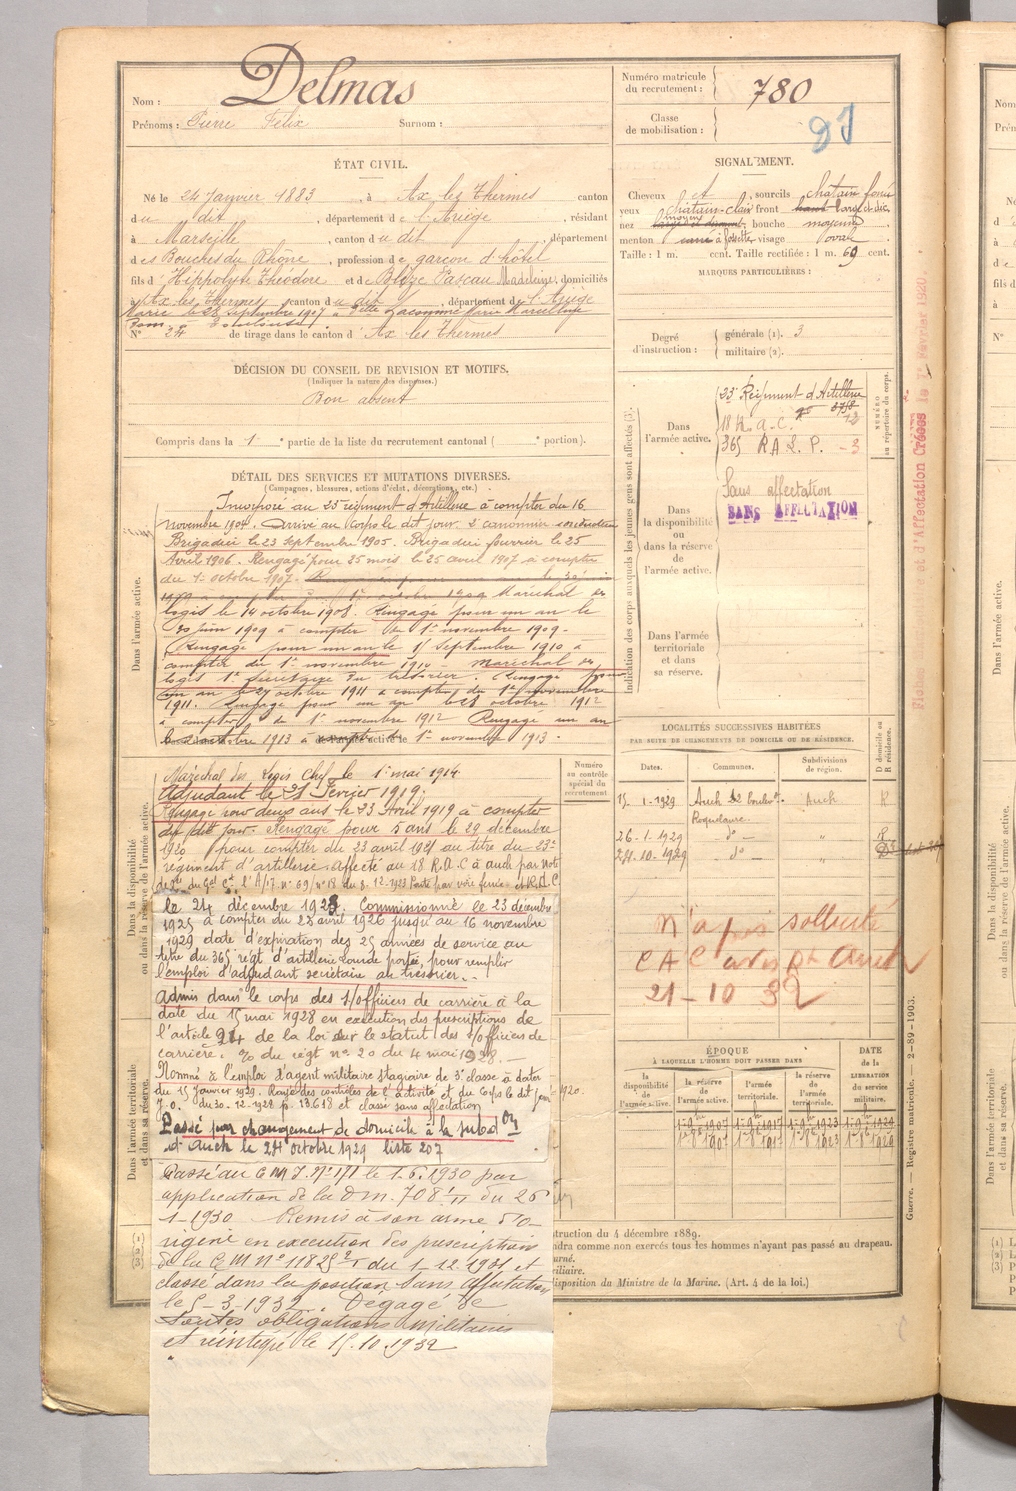 Nom : Delmas
Prénoms : Pierre Félix Surnom :
Numéro matricule du recrutement : 780
Classe de mobilisation :
ÉTAT CIVIL.
Né le 24 Janvier 1883, à Ax les Thermes canton
du dit, département de l'Ariège, résidant
à Marseille, canton du dit, département
des Bouches du Rhône, profession de garçon d'hôtel
fils d'Hippolyte Théodore et de Blaze Pascau Madeleine, domiciliés
à Ax les Thermes, canton du dit, département de l'Ariège
Marié le 28 septembre 1907 à Delle Lacomme Marie
N° 24 de tirage dans le canton d'Ax les Thermes
SIGNALEMENT.
Cheveux et sourcils chatain foncé
yeux chatain-clair front haut large et déc,
nez moyen bouche moyenne
menton à fossette visage ovale
Taille : 1 m. cent. Taille rectifiée : 1 m. 69 cent.
MARQUES PARTICULIÈRES :
Degré d'instruction : générale (1). 3
militaire (2).
DÉCISION DU CONSEIL DE REVISION ET MOTIFS.
(Indiquer la nature des dispenses.)
Bon absent
Compris dans la 1e partie de la liste du recrutement cantonal ( e portion).
DÉTAIL DES SERVICES ET MUTATIONS DIVERSES.
(Campagnes, blessures, actions d'éclat, décorations, etc.)
Dans l'armée active.
Incorporé au 23e régiment d'Artillerie à compter du 16
novembre 1904. Arrivé au Corps le dit jour 2e canonnier conducteur
Brigadier le 23 Septembre 1905. Brigadier fourrier le 25
Avril 1906. Rengagé pour 25 mois le 25 avril 1907 à compter
du 1er octobre 1907.
1er octobre 1909 Maréchal des
logis le 14 octobre 1908. Rengagé pour un an le
30 juin 1909 à compter du 1er novembre 1909.
Rengagé pour un an le 1er Septembre 1910 à
compter du 1er novembre 1910 - Maréchal des
logis 1er Secrétaire du trésorier. Rengagé pour
un an le 27 octobre 1911 à compter du 1er novembre
1911. Rengagé pour un an le 28 octobre 1912
à compter du 1er novembre 1912 Rengagé un an
octobre 1913 à compter du 1er novembre 1913.
Dans la disponibilité ou dans la réserve de l'armée active.
Maréchal des Logis Chef le 1er mai 1914.
Adjudant le 21 Février 1919.
Rengagé pour deux ans le 23 Avril 1919 à compter
du dit jour. Rengagé pour 5 ans le 29 décembre
1920 pour compter du 23 avril 1921 au titre du 23e
régiment d'artillerie. affecté au 18 R.A.C à auch par note
le 24 décembre 1923. Commissionné le 23 décembre
1925 à compter du 23 avril 1926 jusqu'au 16 novembre
1929 date d'expiration des 25 années de service au
titre du 365 régt d'artillerie lourde portée, pour remplir
l'emploi d'adjudant secrétaire au trésorier.
Admis dans le corps des s/officiers de carrière à la
date du 15 mai 1928 en exécution des prescriptions de
l'article 24 de la loi sur le statut des s/officiers de
carrière. % du régt n° 20 du 4 mai 1928.
Nommé à l'emploi d'agent militaire stagiaire de 3e classe à dater
du 15 Janvier 1929. Rayé des contrôles de l'activité et du Corps le dit jour
J.O. du 30-12-1928 p. 13618 et classé sans affectation
Passé par changement de domicile à la subdon
d'Auch le 24 octobre 1929 liste 207
Dans l'armée territoriale et dans sa réserve.
Passé au C M I N° 171 le 1-6-1930 par
application de la DM. 708 du 26
1-1930 Remis à son arme d'o-
rigine en exécution des prescriptions
de la C M N° 11825 du 1-12-1931 et
classé dans la position Sans Affectation
le 5-3-1932. Dégagé de
toutes obligations militaires
et réintégré le 15.10.1932
Indication des corps auxquels les jeunes gens sont affectés (3).
Dans l'armée active.
23e Régiment d'Artillerie
18 R. A. C.
365 R A L P. - 3
NUMÉRO au répertoire du corps.
Dans la disponibilité ou dans la réserve de l'armée active.
Sans affectation
SANS AFFECTATION
Dans l'armée territoriale et dans sa réserve.
et d'Affectation Créées le 1er Février 1920
Numéro au contrôle spécial du recrutement
LOCALITÉS SUCCESSIVES HABITÉES
PAR SUITE DE CHANGEMENTS DE DOMICILE OU DE RÉSIDENCE.
Dates. Communes. Subdivisions de région. D domicile ou R résidence.
15-1-1929 Auch Auch R
Roquelaure
26-1-1929 do - " R
24-10-1929 do - " D
N'a pas sollicité
C A C avis Dt Auch
21-10 32
ÉPOQUE
À LAQUELLE L'HOMME DOIT PASSER DANS
la disponibilité de l'armée active.
la réserve de l'armée active.
l'armée territoriale.
la réserve de l'armée territoriale.
DATE de la LIBÉRATION du service militaire.
Guerre. — Registre matricule. — 2-89-1903.
struction du 4 décembre 1889.
ndra comme non exercés tous les hommes n'ayant pas passé au drapeau.
urné.
iliaire.
isposition du Ministre de la Marine. (Art. 4 de la loi.)